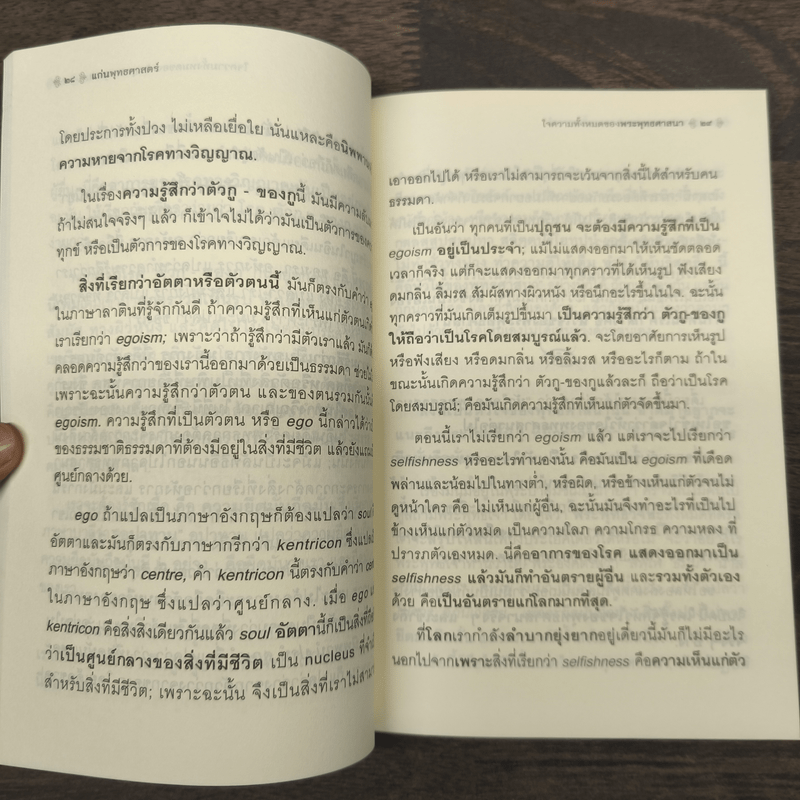 ๒๘ แก่นพุทธศาสตร์
โดยประการทั้งปวง ไม่เหลือเยื่อใย นั่นแหละคือนิพพาน
ความหายจากโรคทางวิญญาณ.
ในเรื่องความรู้สึกว่าตัวกู - ของกูนี้ มันมีความ
ถ้าไม่สนใจจริงๆ แล้ว ก็เข้าใจไม่ได้ว่ามันเป็นตัวการของ
ทุกข์ หรือเป็นตัวการของโรคทางวิญญาณ.
สิ่งที่เรียกว่าอัตตาหรือตัวตนนี้ มันก็ตรงกับคำว่า
ในภาษาลาตินที่รู้จักกันดี ถ้าความรู้สึกที่เห็นแก่ตัวตน
เราเรียกว่า egoism; เพราะว่าถ้ารู้สึกว่ามีตัวเราแล้ว มัน
คลอดความรู้สึกว่าของเรานี้ออกมาด้วยเป็นธรรมดา
เพราะฉะนั้นความรู้สึกว่าตัวตน และของตนรวมกัน
egoism. ความรู้สึกที่เป็นตัวตน หรือ ego นี้กล่าวได้
ของธรรมชาติธรรมดาที่ต้องมีอยู่ในสิ่งที่มีชีวิต แล้วยัง
ศูนย์กลางด้วย.
ego ถ้าแปลเป็นภาษาอังกฤษก็ต้องแปลว่า soul
อัตตาและมันก็ตรงกับภาษากรีกว่า kentricon ซึ่ง
ภาษาอังกฤษว่า centre, คำ kentricon นี้ตรงกับคำว่า
ในภาษาอังกฤษ ซึ่งแปลว่าศูนย์กลาง. เมื่อ ego
kentricon คือสิ่งสิ่งเดียวกันแล้ว soul อัตตานี้ก็เป็นสิ่งที่
ว่าเป็นศูนย์กลางของสิ่งที่มีชีวิต เป็น nucleus
สำหรับสิ่งที่มีชีวิต; เพราะฉะนั้น จึงเป็นสิ่งที่เราไม่
ใจความทั้งหมดของพระพุทธศาสนา ๒๙
เอาออกไปได้ หรือเราไม่สามารถจะเว้นจากสิ่งนี้ได้สำหรับคน
ธรรมดา.
เป็นอันว่า ทุกคนที่เป็นปุถุชน จะต้องมีความรู้สึกที่เป็น
egoism อยู่เป็นประจำ; แม้ไม่แสดงออกมาให้เห็นชัดตลอด
เวลาก็จริง แต่ก็จะแสดงออกมาทุกคราวที่ได้เห็นรูป ฟังเสียง
ดมกลิ่น ลิ้มรส สัมผัสทางผิวหนัง หรือนึกอะไรขึ้นในใจ. ฉะนั้น
ทุกคราวที่มันเกิดเต็มรูปขึ้นมา เป็นความรู้สึกว่า ตัวกู-ของกู
ให้ถือว่าเป็นโรคโดยสมบูรณ์แล้ว. จะโดยอาศัยการเห็นรูป
หรือฟังเสียง หรือดมกลิ่น หรือลิ้มรส หรืออะไรก็ตาม ถ้าใน
ขณะนั้นเกิดความรู้สึกว่า ตัวกู-ของกูแล้วละก็ ถือว่าเป็นโรค
โดยสมบูรณ์; คือมันเกิดความรู้สึกที่เห็นแก่ตัวจัดขึ้นมา.
ตอนนี้เราไม่เรียกว่า egoism แล้ว แต่เราจะไปเรียกว่า
selfishness หรืออะไรทำนองนั้น คือมันเป็น egoism ที่เดือด
พล่านและน้อมไปในทางต่ำ, หรือผิด, หรือข้างเห็นแก่ตัวจนไม่
ดูหน้าใคร คือ ไม่เห็นแก่ผู้อื่น, ฉะนั้นมันจึงทำอะไรที่เป็นไป
ข้างเห็นแก่ตัวหมด เป็นความโลภ ความโกรธ ความหลง ที่
ปรารภตัวเองหมด. นี่คืออาการของโรค แสดงออกมาเป็น
selfishness แล้วมันก็ทำอันตรายผู้อื่น และรวมทั้งตัวเอง
ด้วย คือเป็นอันตรายแก่โลกมากที่สุด.
ที่โลกเรากำลังลำบากยุ่งยากอยู่เดี๋ยวนี้มันก็ไม่มีอะไร
นอกไปจากเพราะสิ่งที่เรียกว่า selfishness คือความเห็นแก่ตัว